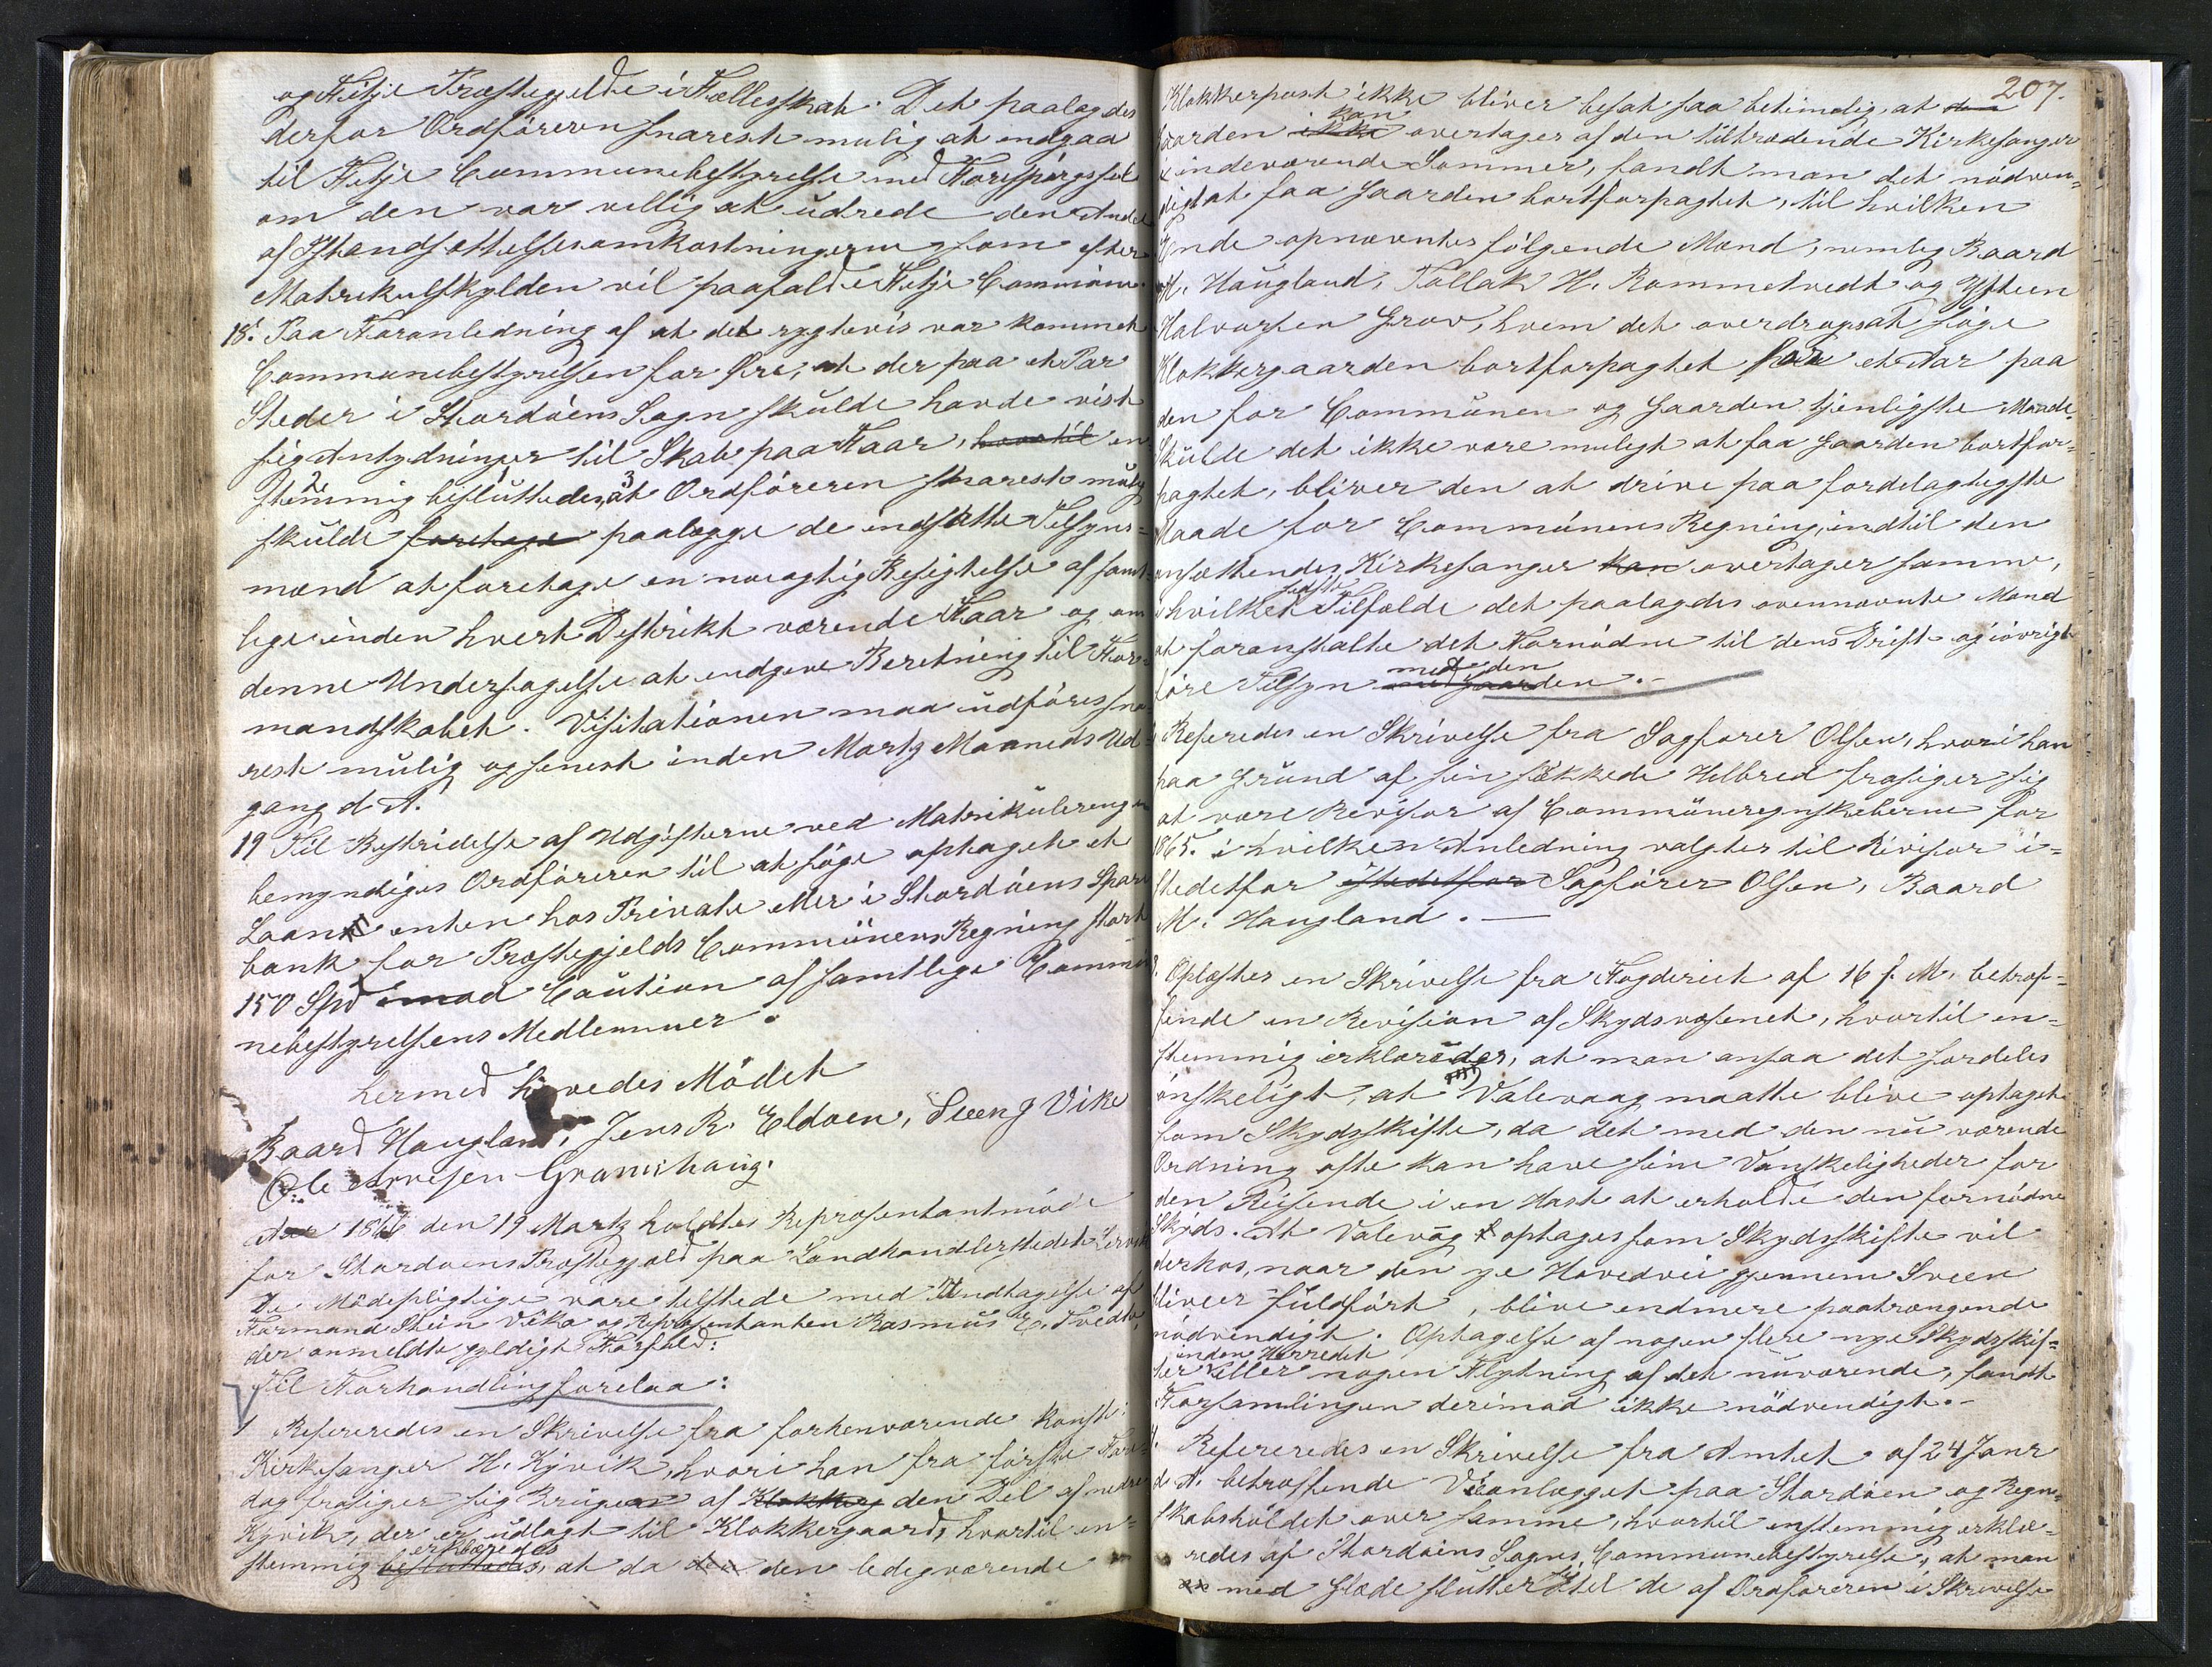 og Fitje Præstegjelde i Fællesskab. Det paalagdes
derfor Ordføreren snarest mulig at indgaa
til Fitje Communebestyrelse med Forespørgssel
om den var villig at udrede den Andel
af Istandsættelsesomkostningerne som efter
Matrikulskylden vil paafalde Fitje Commune.
18. Paa Foranledning af at det rygtevis var kommet
Communebestyrelsen for Øre, at der paa et Par
Steder i Stordøens Sogn skulde havde vist
sig Antydninger til Skab paa Faar, hvortil en
stemmig besluttedes, at Ordføreren snarest mulig
skulde foretage paalægge de indsatte Tilsyns-
mænd at foretage en nøiagtig Besigtelse af samt-
lige inden hvert Distrikt værende Faar og om
denne Undersøgelse at indgive Beretning til For-
mandskabet. Visitationen maa udføres sna-
rest mulig og senest inden Martz Maaneds Ud-
gang d. A.
19 Til Bestridelse af Udgifterne ved Matrikuleringen
bemyndiges Ordføreren til at søge optaget et
Laan enten hos Private eller i Stordøens Spare
bank for Præstegjelds Communens Regning stort
150 Spd imod Caution af samtlige Commu-
nebestyrelsens Medlemmer.
Hermed hævedes Mødet
Baard Haugland, Jens R. Eldøen, Sveen J Vike
Ole Arvesen Grønshaug.
Aar 1866 den 19 Martz holdtes Repræsentantmøde
for Stordøens Præstegjeld paa Landhandlerstedet Lervik
De Mødepligtige vare tilstede med Undtagelse af
Formand Stein Vike og Repræsentanten Rasmus E. Tvedte,
der anmeldte gyldigt Forfald:
Til Forhandling forelaa:
1 Refereredes en Skrivelse fra forhenværende Konst:
Kirkesanger H. Kyvik, hvori han fra første Fare-
dag frasiger sig Brugen af Klokkerg den Del af nedre
Kyvik, der er udlagt til Klokkergaard, hvortil en-
stemmig besluttedes erklæredes, at da den den ledigværende
207.
Klokkerpost ikke bliver besat saa betimelig, at den
Gaarden ikke kan overtages af den tiltrædende Kirkesanger
i indeværende Sommer, fandt man det nødven-
digt at faa Gaarden bortforpagtet, til hvilken
Ende opnævntes følgende Mænd, nemlig Baard
M. Haugland, Tollak H. Rommetvedt og Ysteen
Halvorsen Grov, hvem det overdroges at søge
Klokkergaarden bortforpagtet paa et Aar paa
den for Communen og Gaarden tjenligste Maade.
Skulde det ikke være muligt at faa Gaarden bortfor-
pagtet, bliver den at drive paa fordelagtigste
Maade for Communens Regning, indtil den
ansættendes Kirkesanger kan overtager samme,
i hvilket sidste Tilfælde det paalagdes ovennævnte Mænd
at foranstalte det Fornødne til dens Drift og iøvrigt
føre Tilsyn med gaarden med den.-
Referedes en Skrivelse fra Sagfører Olsen, hvori han
paa Grund af sin svækkede Helbred frasiger sig
at være Revisor af Communeregnskaberne for
1865. i hvilken Anledning valgtes til Revisor i-
stedetfor istedetfor Sagfører Olsen, Baard
M. Haugland.-
Oplæstes en Skrivelse fra Fogderiet af 16 f. M. betref-
fende en Revision af Skydsvæsenet, hvortil en-
stemmig erklæredes, at man ansaa det særdeles
ønskeligt, at Valevaag maatte blive optaget
som Skydsskifte, da det med den nu værende
Ordning ofte kan have sine Vanskeligheder for
den Reisende i en Hast at erholde den fornødne
Skyds. At Valevåg optages som Skydsskifte vil
derhos, naar den nye Hovedvei gjennem Sveen
bliver fuldført, blive endmere paatrængende
nødvendigt. Optagelse af nogen flere nye Skydsskif-
ter inden Herredet eller nogen Flytning af det nuværende, fandt
Forsamlingen derimod ikke nødvendigt.-
Refereredes en Skrivelse fra Amtet af 24 Janr
d. A. betræffende Veianlægget paa Stordøen og Regn-
skabsholdet over samme, hvortil enstemmig erklæ-
redes af Stordøens Sogns Communebestyrelse, at man
med Glæde slutter sig til de af Ordføreren i Skrivelse